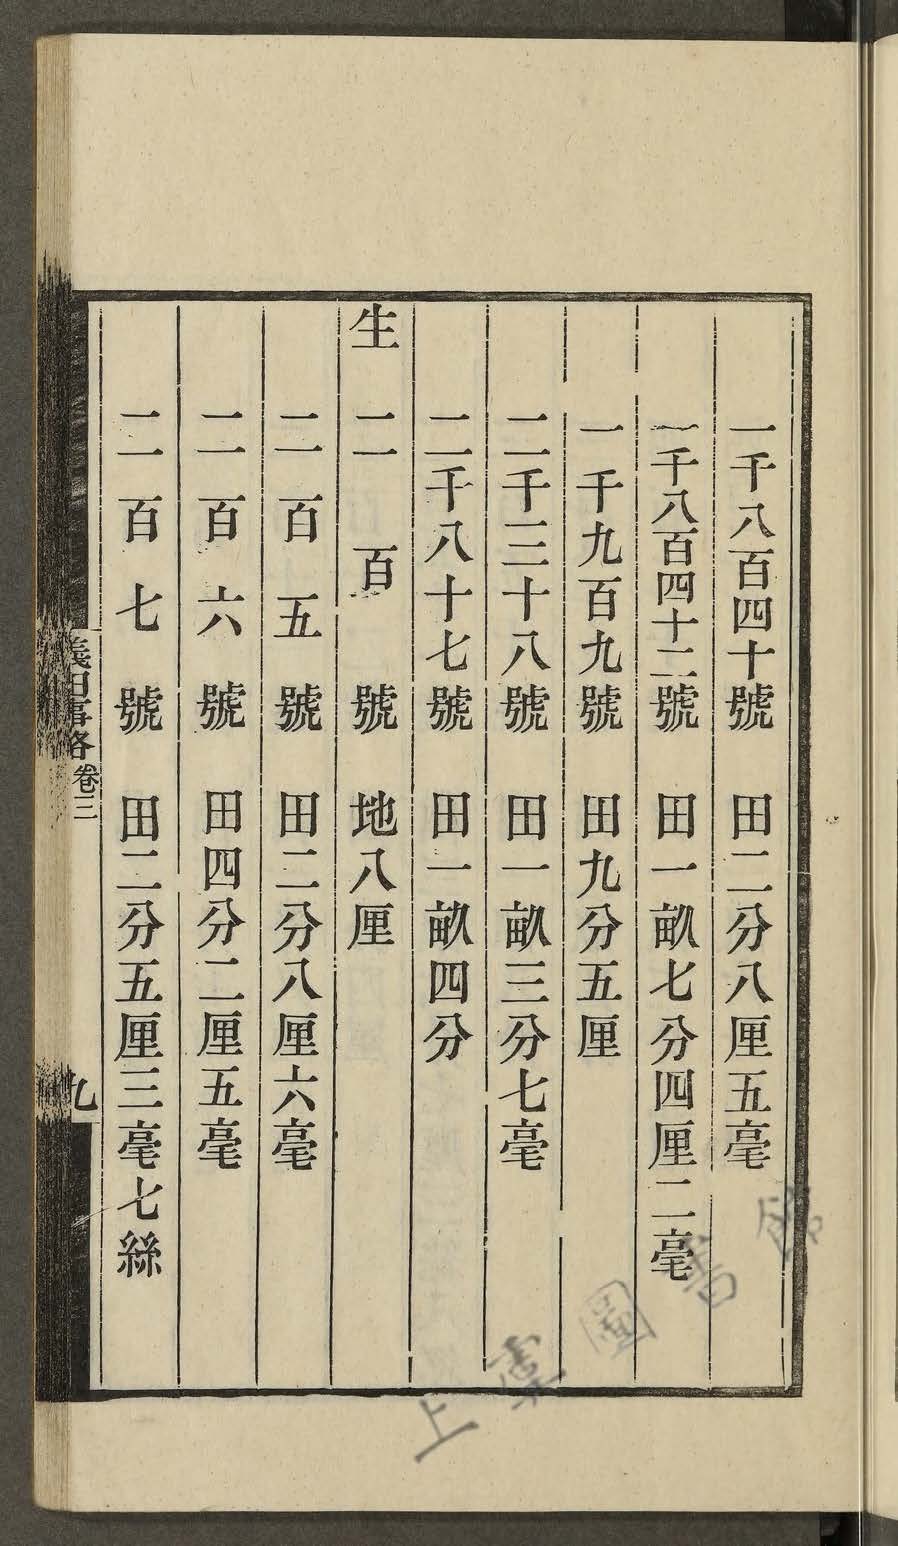 一千八百四十號　田二分八厘五毫
一千八百四十二號　田一畝七分四厘二毫
一千九百九號　田九分五厘
二千三十八號　田一畝三分七毫
二千八十七號　田一畝四分
生　二百號　地八厘
二百五號　田二分八厘六毫
二百六號　田四分二厘五毫
二百七號　田二分五厘三毫七絲
義田事略　卷三　九
上虞圖書館